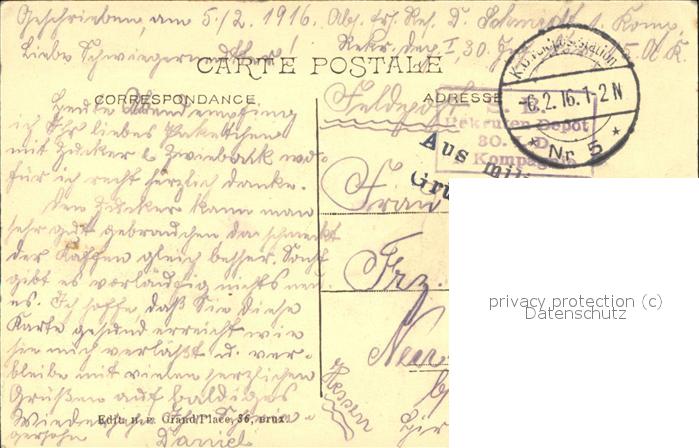 Geschrieben, am 5./2. 1916. Abs. Ers. Res. D. Schmidt 1. Komp.
Liebe Schwiegermutter! Rekr. Dep. I, 30.
CARTE POSTALE
CORRESPONDANCE
ADRESSE
K.D. Feldpoststation
-6.2.16.1-2N
* Nr. 5 *
Rekruten Depot
30.
Kompagnie
Aus mili
Feldpost
Heute Abend empfing
ich Ihr liebes Paketchen
mit Zucker & Zwieback wo-
für ich recht herzlich danke.
Den Zucker kann man
sehr gut gebrauchen da schmeckt
der Kaffee gleich besser. Sonst
gibt es vorläufig nichts neu-
es. Ich hoffe daß Sie diese
Karte gesund erreicht wie
sie mich verläßt u. ver-
bleibe mit vielen herzlichen
Grüßen auf baldiges
Wiedersehen Ihr Schwie-
gersohn Daniel
Frau
Frz.
Hessen
Grand'Place, 36, Brux
privacy protection (c)
Datenschutz